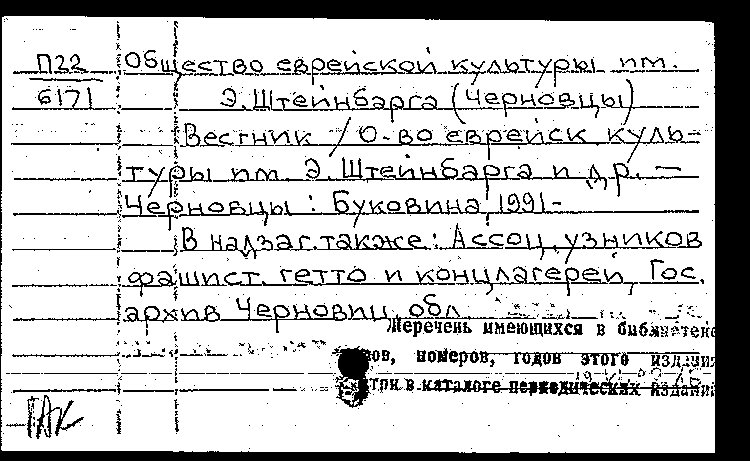 П22
6171
Общество еврейской культуры им.
Э.Штейнбарга (Черновцы)
Вестник / О-во еврейск куль-
туры им. Э.Штейнбарга и др. —
Черновцы : Буковина, 1991-
В надзаг.также: Ассоц. узников
фашист. гетто и концлагерей, Гос.
архив Черновиц. обл.
Перечень имеющихся в библиотеке
номеров, годов этого издания
в каталоге периодических изданий
ГАК